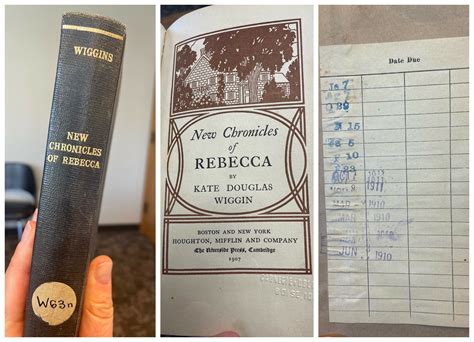 WIGGINS
NEW
CHRONICLES
OF REBECCA
W63n
New Chronicles
of
REBECCA
BY
KATE DOUGLAS
WIGGIN
BOSTON AND NEW YORK
HOUGHTON, MIFFLIN AND COMPANY
The Riverside Press, Cambridge
1907
Date Due
7
15
5
10
1911
1911
MAR 1910
1910
1910
JUN 1910